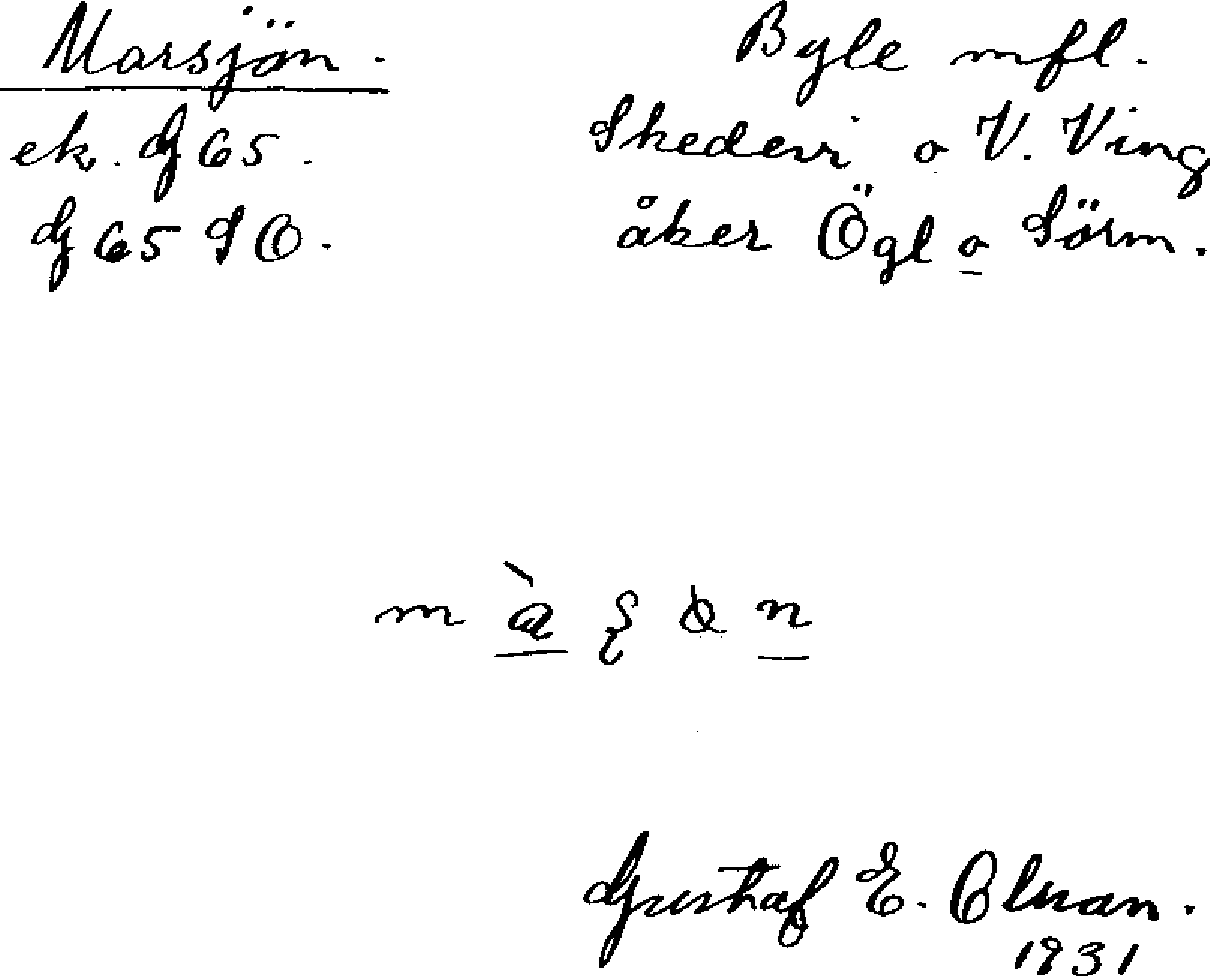 Marsjön.
ek. G 65.
G 65 SO.
Byle mfl.
Skedevi o V. Ving
åker Ögl o Sörm.
m
n
Gustaf E. Olsson.
1931